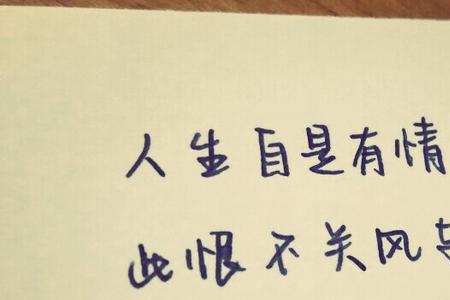 人生自是有情
此恨不关风